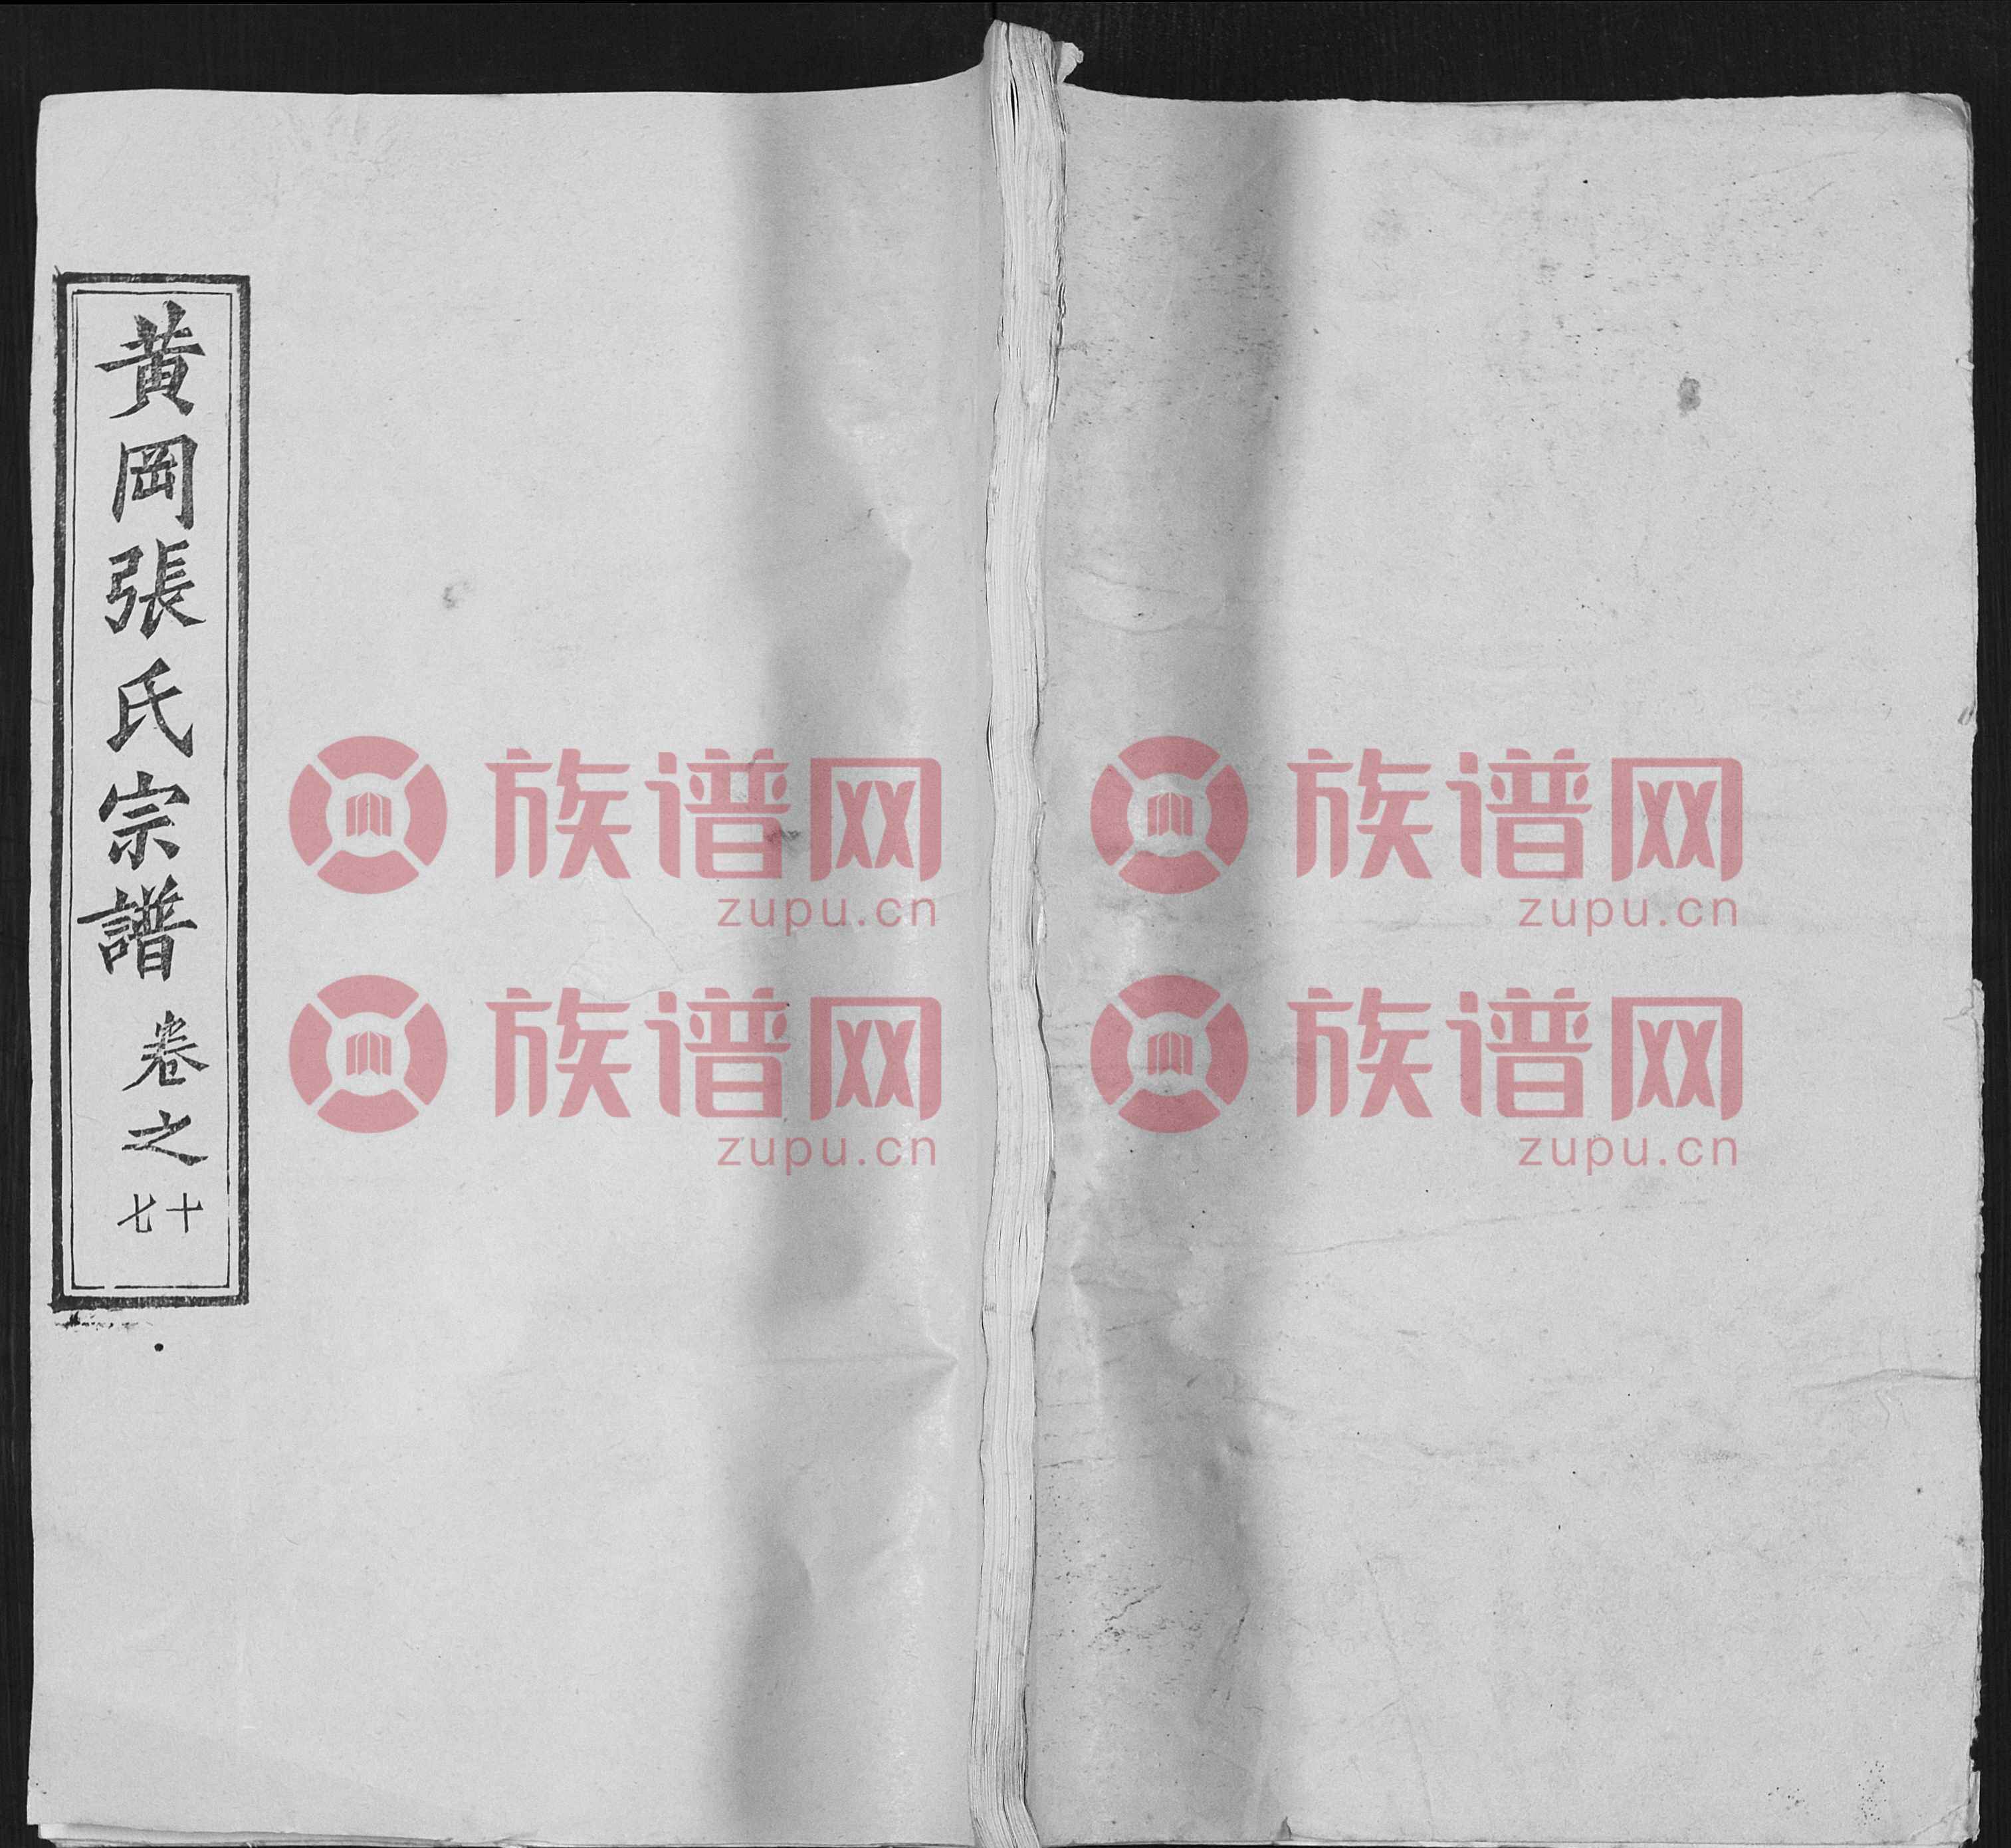 黄岡張氏宗譜 卷之十七
族谱网
zupu.cn
族谱网
zupu.cn
族谱网
zupu.cn
族谱网
zupu.cn